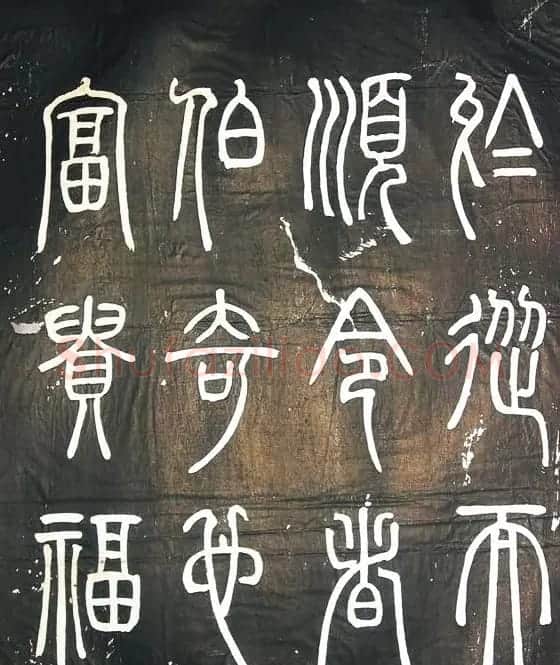 於從而
順令者
伯奇也
富貴福